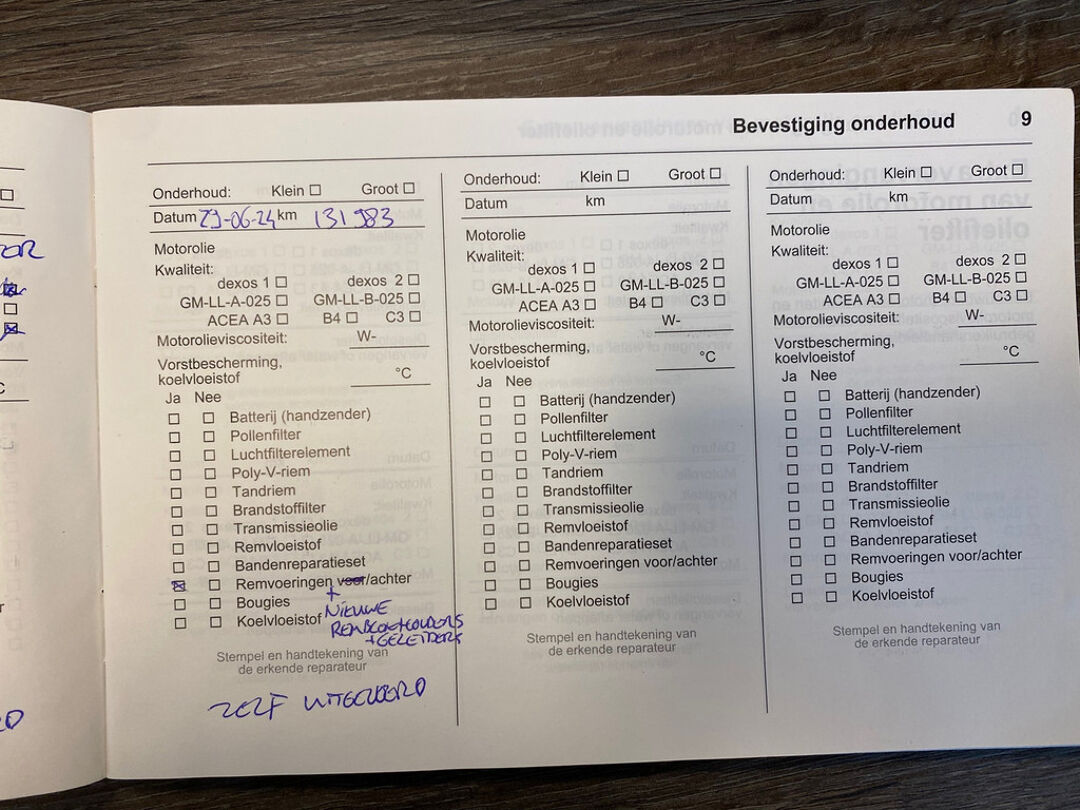 Bevestiging onderhoud 9
Onderhoud: Klein ☐ Groot ☐
Datum 29-06-24 km 131 983
Motorolie
Kwaliteit:
dexos 1 ☐ dexos 2 ☐
GM-LL-A-025 ☐ GM-LL-B-025 ☐
ACEA A3 ☐ B4 ☐ C3 ☐
Motorolieviscositeit: W-
Vorstbescherming,
koelvloeistof °C
Ja Nee
☐ ☐ Batterij (handzender)
☐ ☐ Pollenfilter
☐ ☐ Luchtfilterelement
☐ ☐ Poly-V-riem
☐ ☐ Tandriem
☐ ☐ Brandstoffilter
☐ ☐ Transmissieolie
☐ ☐ Remvloeistof
☐ ☐ Bandenreparatieset
☒ ☐ Remvoeringen voor/achter
☐ ☐ Bougies +
☐ ☐ Koelvloeistof NIEUWE
REMBLOKHOUDERS
+ GELEIDERS
Stempel en handtekening van
de erkende reparateur
ZELF UITGEVOERD
Onderhoud: Klein ☐ Groot ☐
Datum km
Motorolie
Kwaliteit:
dexos 1 ☐ dexos 2 ☐
GM-LL-A-025 ☐ GM-LL-B-025 ☐
ACEA A3 ☐ B4 ☐ C3 ☐
Motorolieviscositeit: W-
Vorstbescherming,
koelvloeistof °C
Ja Nee
☐ ☐ Batterij (handzender)
☐ ☐ Pollenfilter
☐ ☐ Luchtfilterelement
☐ ☐ Poly-V-riem
☐ ☐ Tandriem
☐ ☐ Brandstoffilter
☐ ☐ Transmissieolie
☐ ☐ Remvloeistof
☐ ☐ Bandenreparatieset
☐ ☐ Remvoeringen voor/achter
☐ ☐ Bougies
☐ ☐ Koelvloeistof
Stempel en handtekening van
de erkende reparateur
Onderhoud: Klein ☐ Groot ☐
Datum km
Motorolie
Kwaliteit:
dexos 1 ☐ dexos 2 ☐
GM-LL-A-025 ☐ GM-LL-B-025 ☐
ACEA A3 ☐ B4 ☐ C3 ☐
Motorolieviscositeit: W-
Vorstbescherming,
koelvloeistof °C
Ja Nee
☐ ☐ Batterij (handzender)
☐ ☐ Pollenfilter
☐ ☐ Luchtfilterelement
☐ ☐ Poly-V-riem
☐ ☐ Tandriem
☐ ☐ Brandstoffilter
☐ ☐ Transmissieolie
☐ ☐ Remvloeistof
☐ ☐ Bandenreparatieset
☐ ☐ Remvoeringen voor/achter
☐ ☐ Bougies
☐ ☐ Koelvloeistof
Stempel en handtekening van
de erkende reparateur